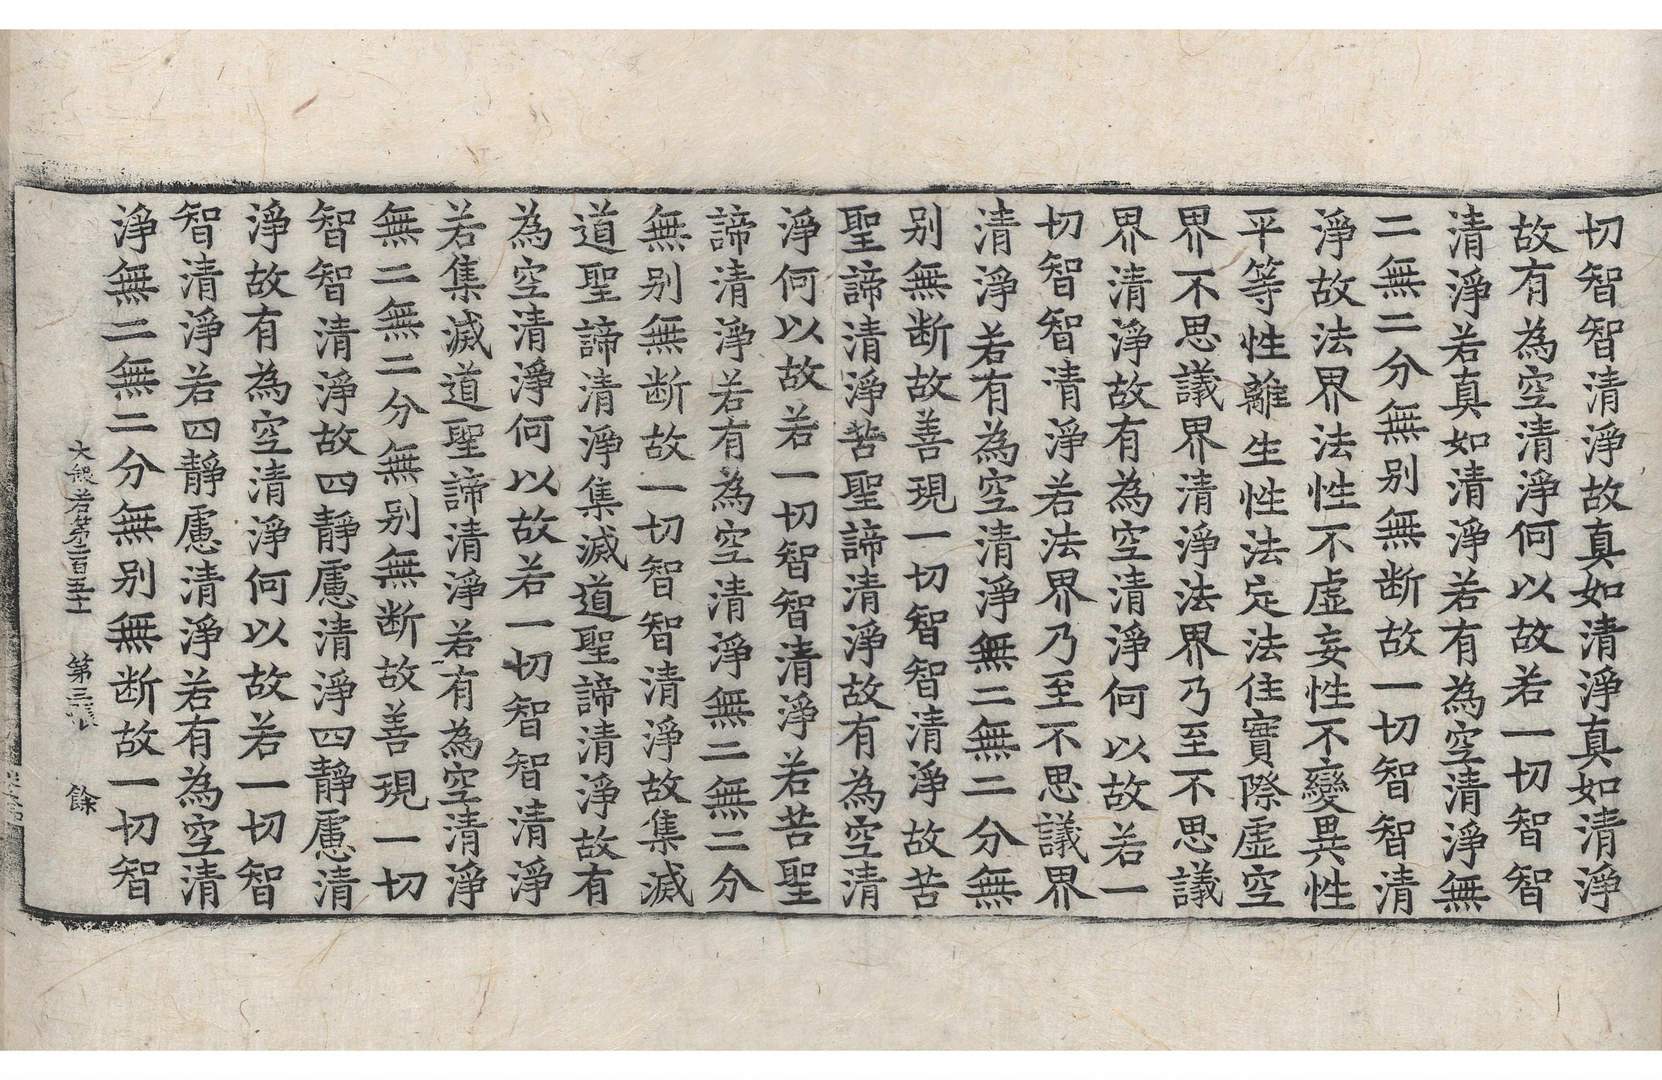 切智智清淨故真如清淨真如清淨
故有為空清淨何以故若一切智智
清淨若真如清淨若有為空清淨無
二無二分無別無断故一切智智清
淨故法界法性不虛妄性不變異性
平等性離生性法定法住實際虛空
界不思議界清淨法界乃至不思議
界清淨故有為空清淨何以故若一
切智智清淨若法界乃至不思議界
清淨若有為空清淨無二無二分無
別無断故善現一切智智清淨故苦
聖諦清淨苦聖諦清淨故有為空清
淨何以故若一切智智清淨若苦聖
諦清淨若有為空清淨無二無二分
無別無断故一切智智清淨故集滅
道聖諦清淨集滅道聖諦清淨故有
為空清淨何以故若一切智智清淨
若集滅道聖諦清淨若有為空清淨
無二無二分無別無断故善現一切
智智清淨故四靜慮清淨四靜慮清
淨故有為空清淨何以故若一切智
智清淨若四靜慮清淨若有為空清
淨無二無二分無別無断故一切智
大般若第二百五十 第三張 餘